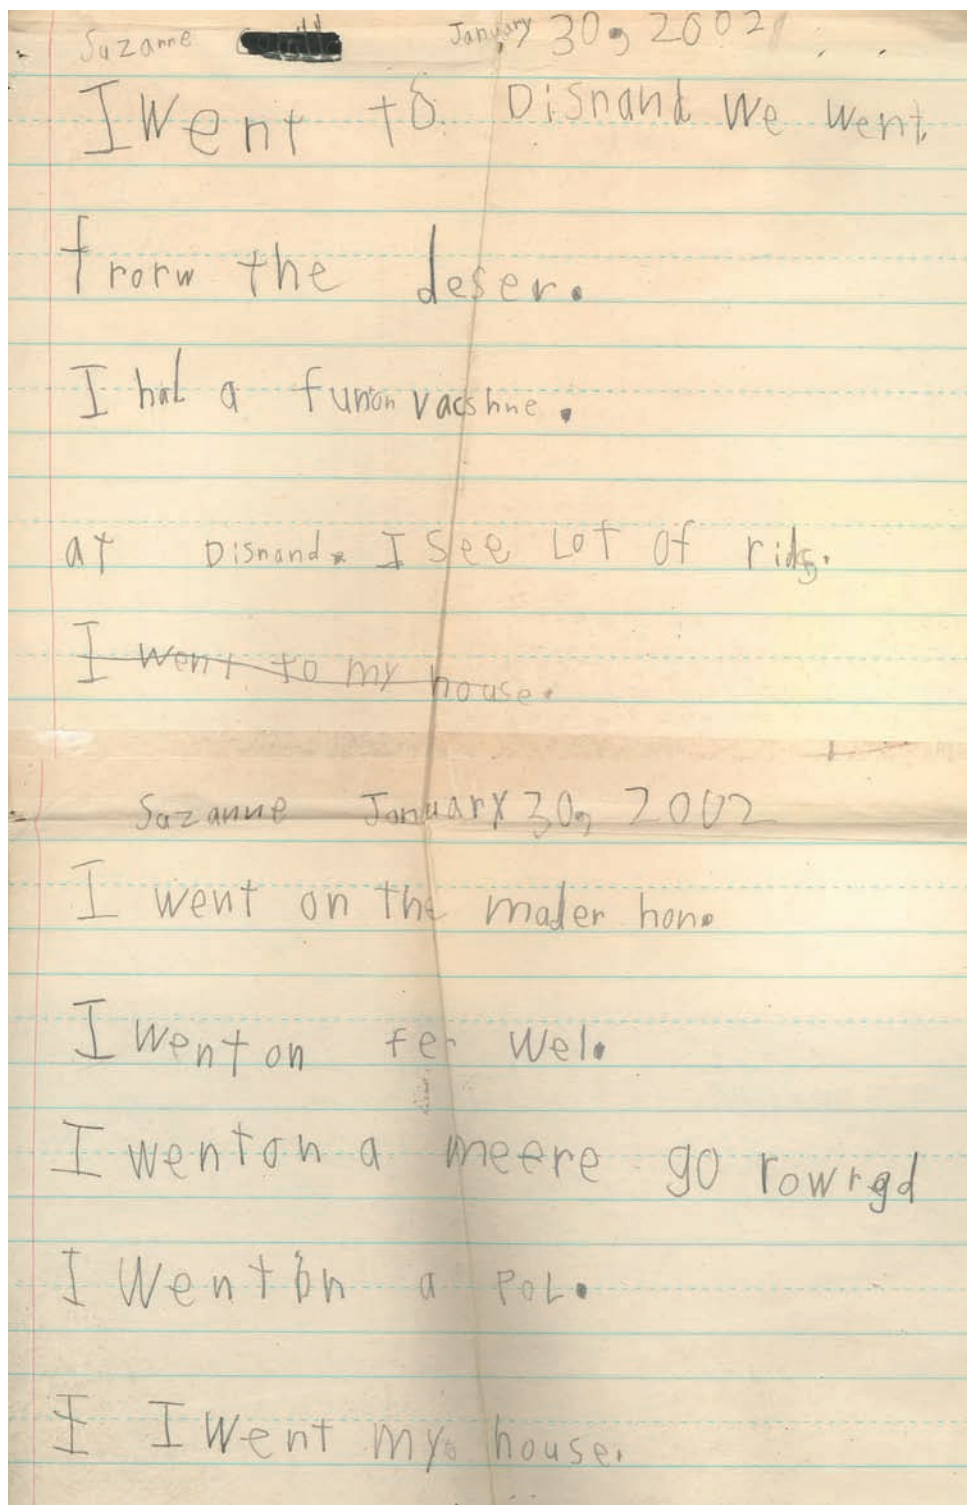 Suzanne January 30, 2002
I Went to Disnand We went
frorw the deser.
I had a funon vacshne.
at Disnand. I See Lot of rids.
I went to my house.
Suzanne January 30, 2002
I went on the mader hon.
I Went on fer Wel.
I went on a meere go rowrgd
I Went on a PoL.
I I Went my house.